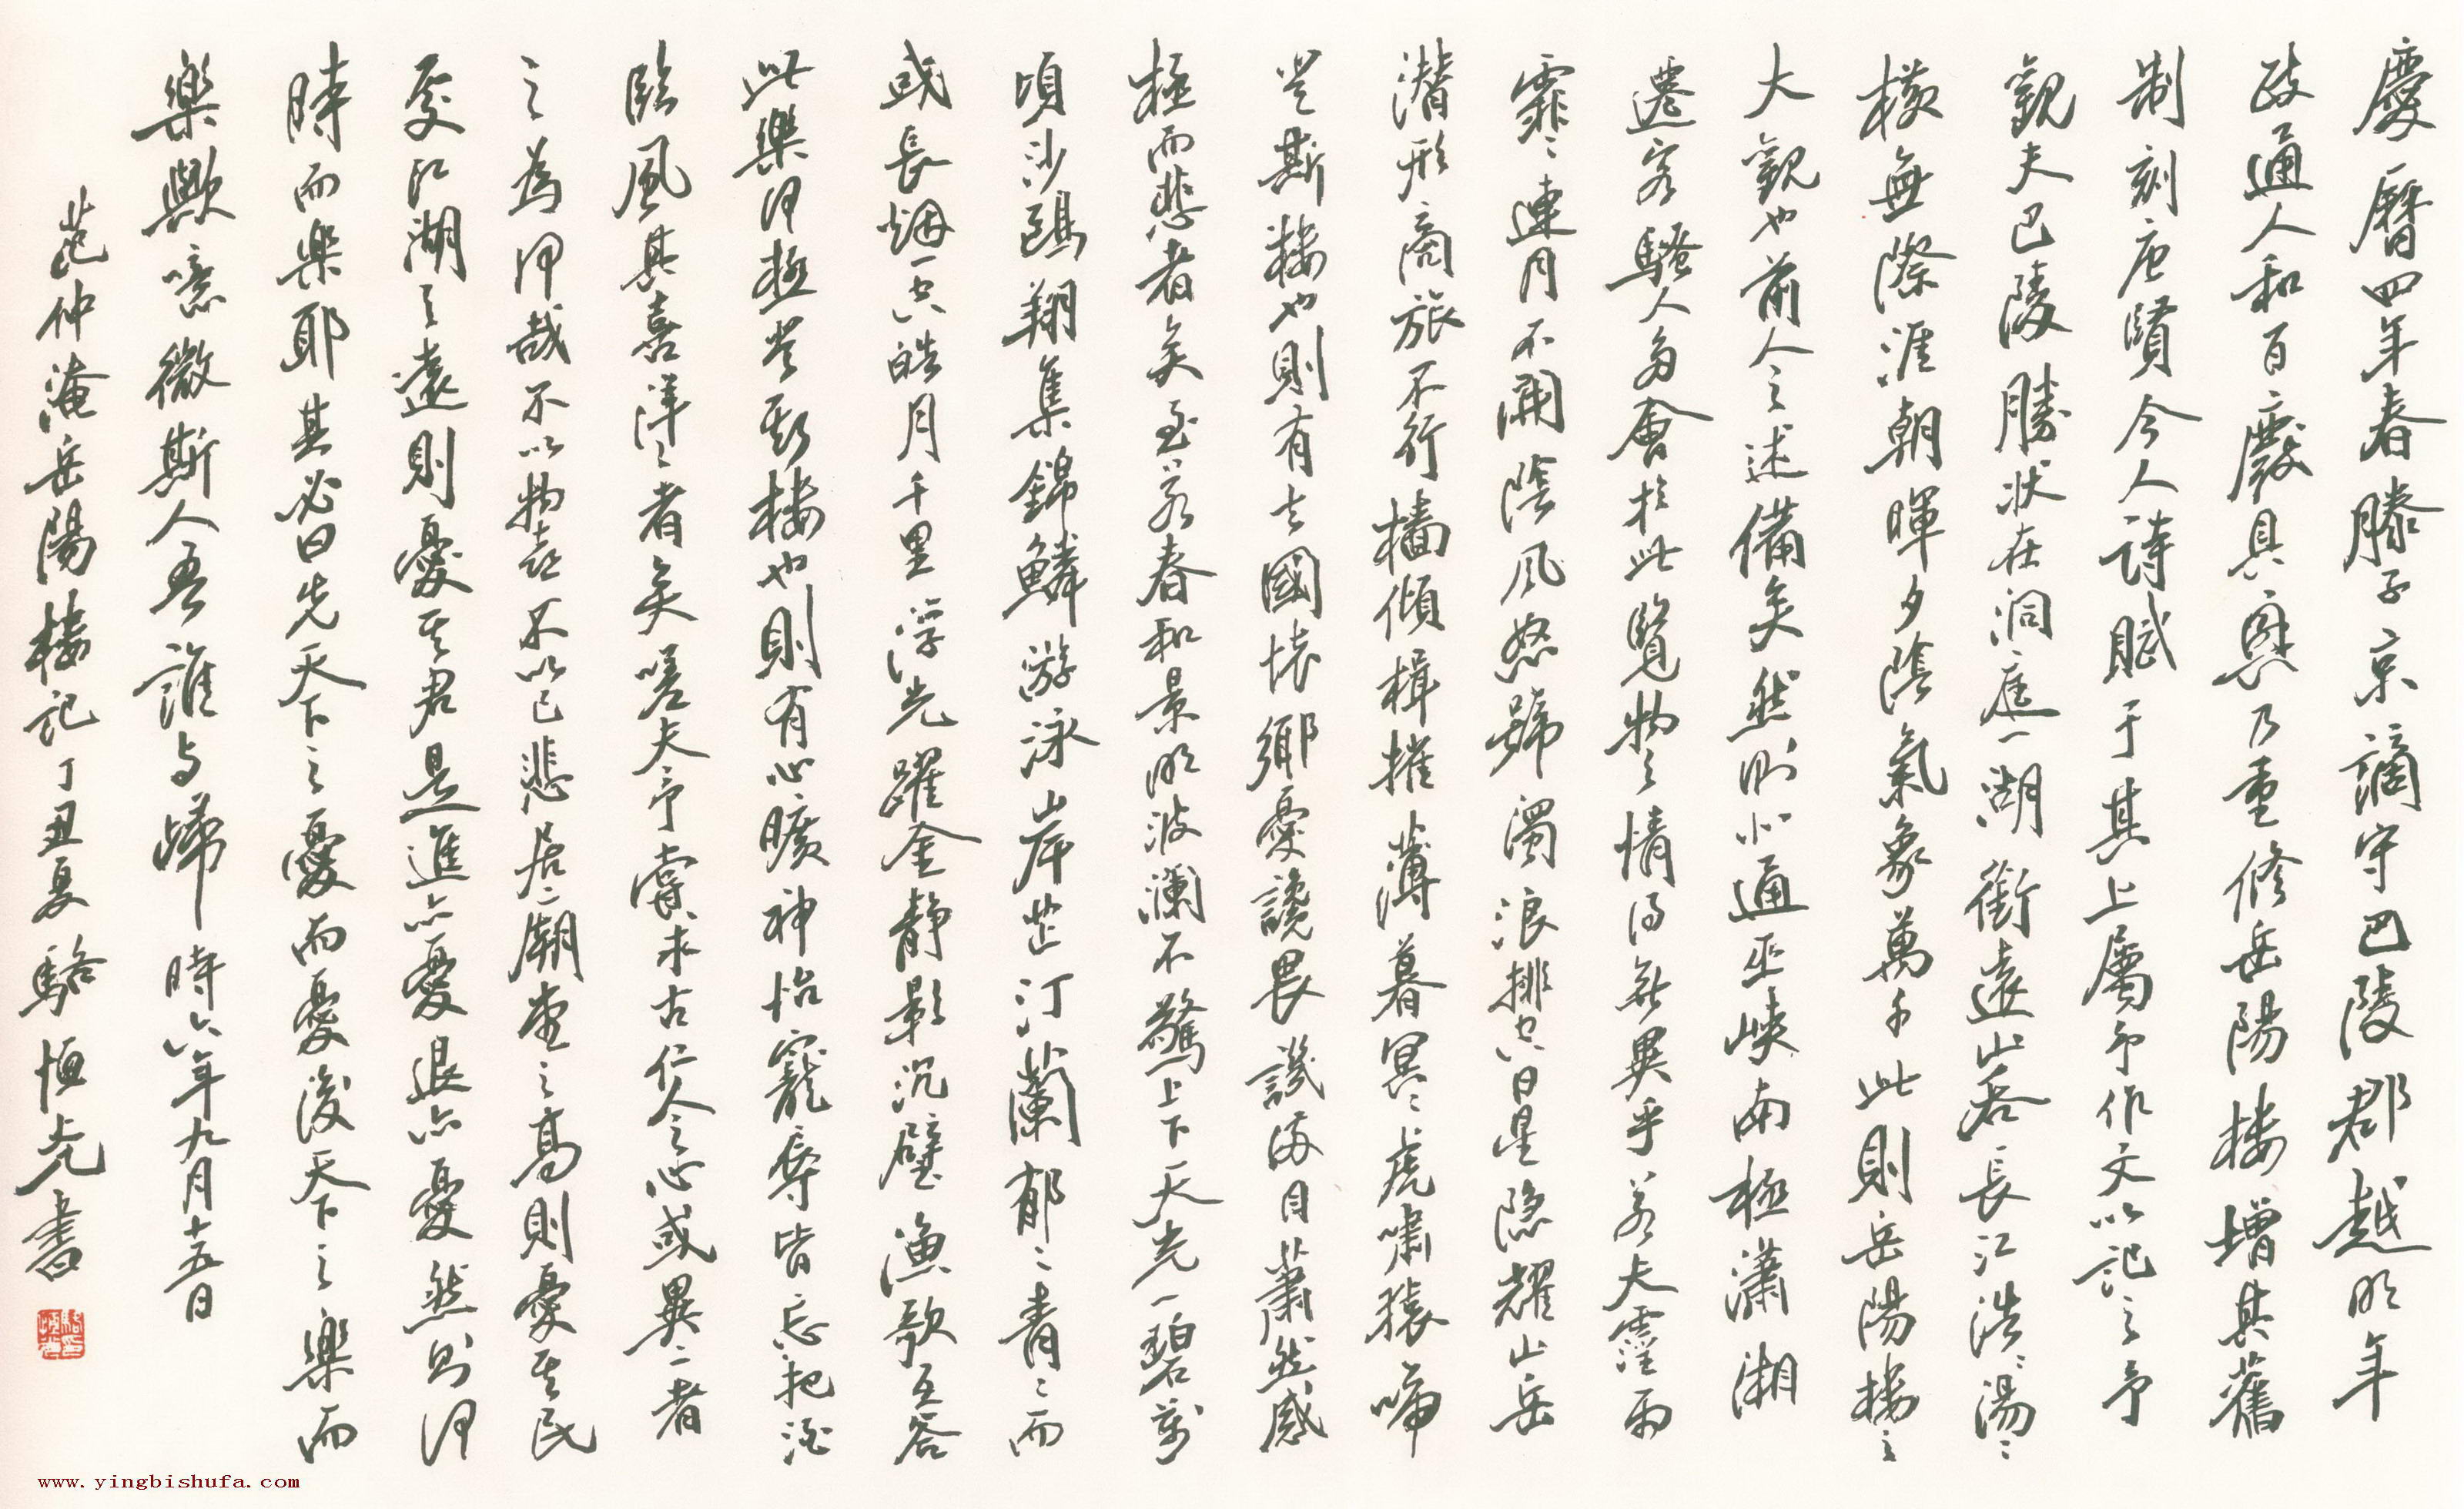 慶曆四年春滕子京謫守巴陵郡越明年
政通人和百廢具興乃重修岳陽樓增其舊
制刻唐賢今人詩賦于其上屬予作文以記之予
觀夫巴陵勝狀在洞庭一湖銜遠山吞長江浩〻湯〻
橫無際涯朝暉夕陰氣象萬千此則岳陽樓之
大觀也前人之述備矣然則北通巫峽南極瀟湘
遷客騷人多會於此覽物之情得無異乎若夫霪雨
霏〻連月不開陰風怒號濁浪排空日星隱耀山岳
潛形商旅不行檣傾楫摧薄暮冥〻虎嘯猿啼
登斯樓也則有去國懷鄉憂讒畏譏滿目蕭然感
極而悲者矣至若春和景明波瀾不驚上下天光一碧萬
頃沙鷗翔集錦鱗游泳岸芷汀蘭郁〻青〻而
或長烟一空皓月千里浮光躍金靜影沉璧漁歌互答
此樂何極登斯樓也則有心曠神怡寵辱皆忘把酒
臨風其喜洋〻者矣嗟夫予嘗求古仁人之心或異二者
之為何哉不以物喜不以己悲居〻廟堂之高則憂其民
處江湖之遠則憂其君是進亦憂退亦憂然則何
時而樂耶其必曰先天下之憂而憂後天下之樂而
樂歟噫微斯人吾誰与歸時六年九月十五日
范仲淹岳陽樓記丁丑夏駱恒光書
www.yingbishufa.com